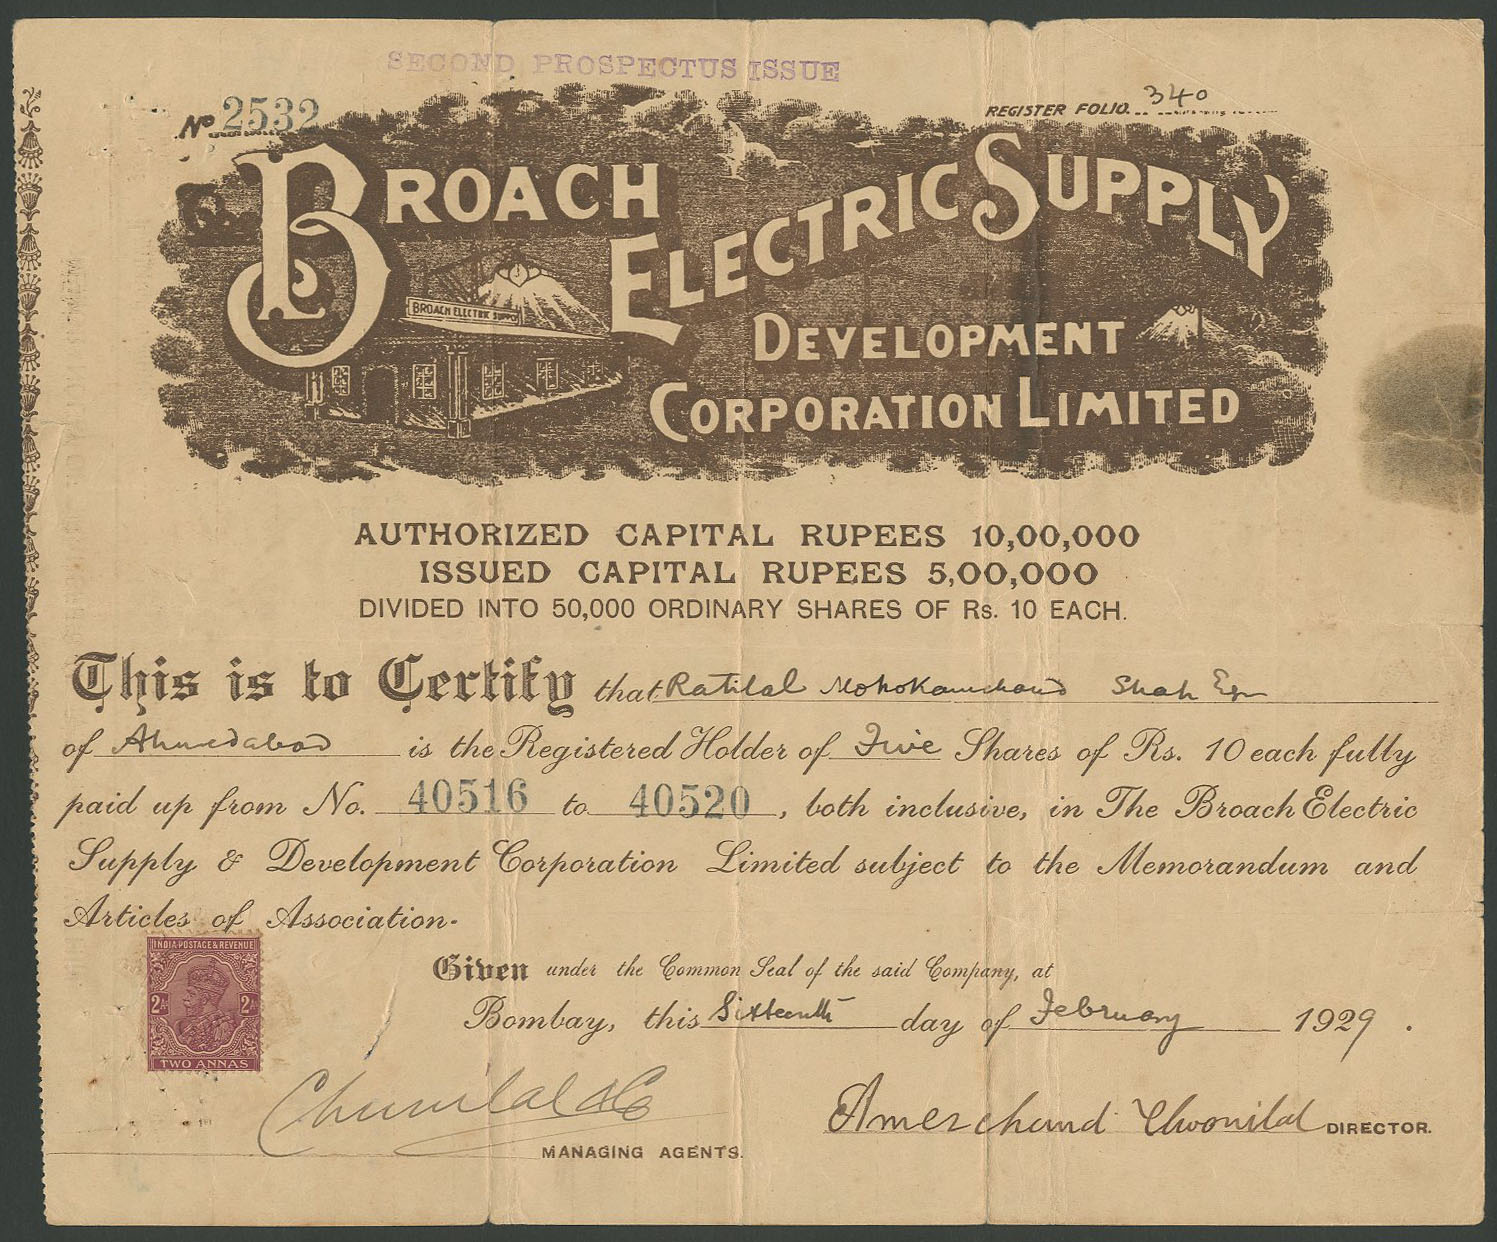 SECOND PROSPECTUS ISSUE
No 2532
REGISTER FOLIO. 340
BROACH ELECTRIC SUPPLY
BROACH ELECTRIC SUPPLY
DEVELOPMENT
CORPORATION LIMITED
AUTHORIZED CAPITAL RUPEES 10,00,000
ISSUED CAPITAL RUPEES 5,00,000
DIVIDED INTO 50,000 ORDINARY SHARES OF Rs. 10 EACH.
This is to Certify that Ratilal Shah Esqr
of Ahmedabad is the Registered Holder of Five Shares of Rs. 10 each fully
paid up from No. 40516 to 40520, both inclusive, in The Broach Electric
Supply & Development Corporation Limited subject to the Memorandum and
Articles of Association.
INDIA POSTAGE & REVENUE
2 As 2 As
TWO ANNAS
Given under the Common Seal of the said Company, at
Bombay, this Sixteenth day of February 1929.
Chunilal & Co
MANAGING AGENTS.
Amerchand Choonilal DIRECTOR.